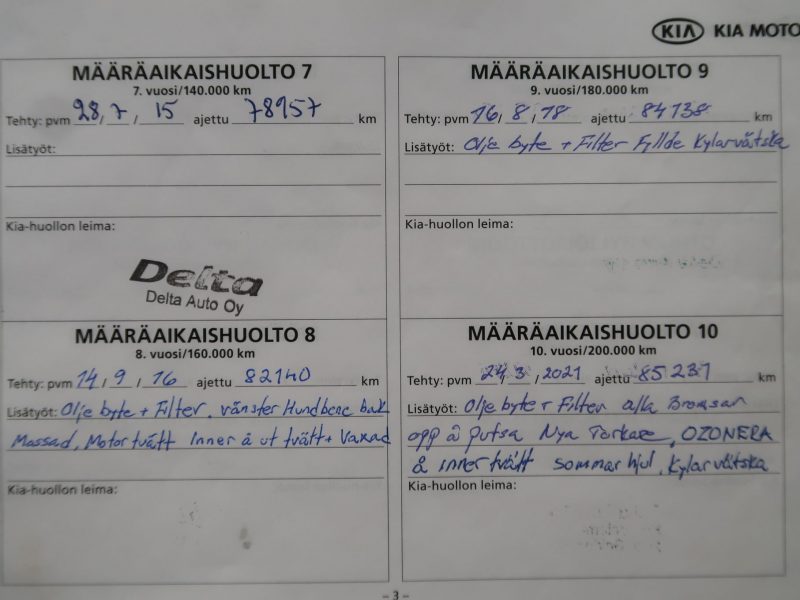 KIA KIA MOTO
MÄÄRÄAIKAISHUOLTO 7
7. vuosi/140.000 km
Tehty: pvm 28/7/15 ajettu 78957 km
Lisätyöt:
Kia-huollon leima:
Delta
Delta Auto Oy
MÄÄRÄAIKAISHUOLTO 9
9. vuosi/180.000 km
Tehty: pvm 16/8/18 ajettu 84138 km
Lisätyöt: Olje byte + Filter Fyllde Kylarvätska
Kia-huollon leima:
MÄÄRÄAIKAISHUOLTO 8
8. vuosi/160.000 km
Tehty: pvm 14/9/16 ajettu 82140 km
Lisätyöt: Olje byte + Filter, vänster bak
Massad, Motor tvätt Inner å ut tvätt + Vaxad
Kia-huollon leima:
MÄÄRÄAIKAISHUOLTO 10
10. vuosi/200.000 km
Tehty: pvm 24/3/2021 ajettu 85231 km
Lisätyöt: Olje byte + Filter alla Bromsar
opp å putsa Nya Torkare, OZONERA
å inner tvätt sommar hjul, Kylarvätska
Kia-huollon leima:
- 3 -